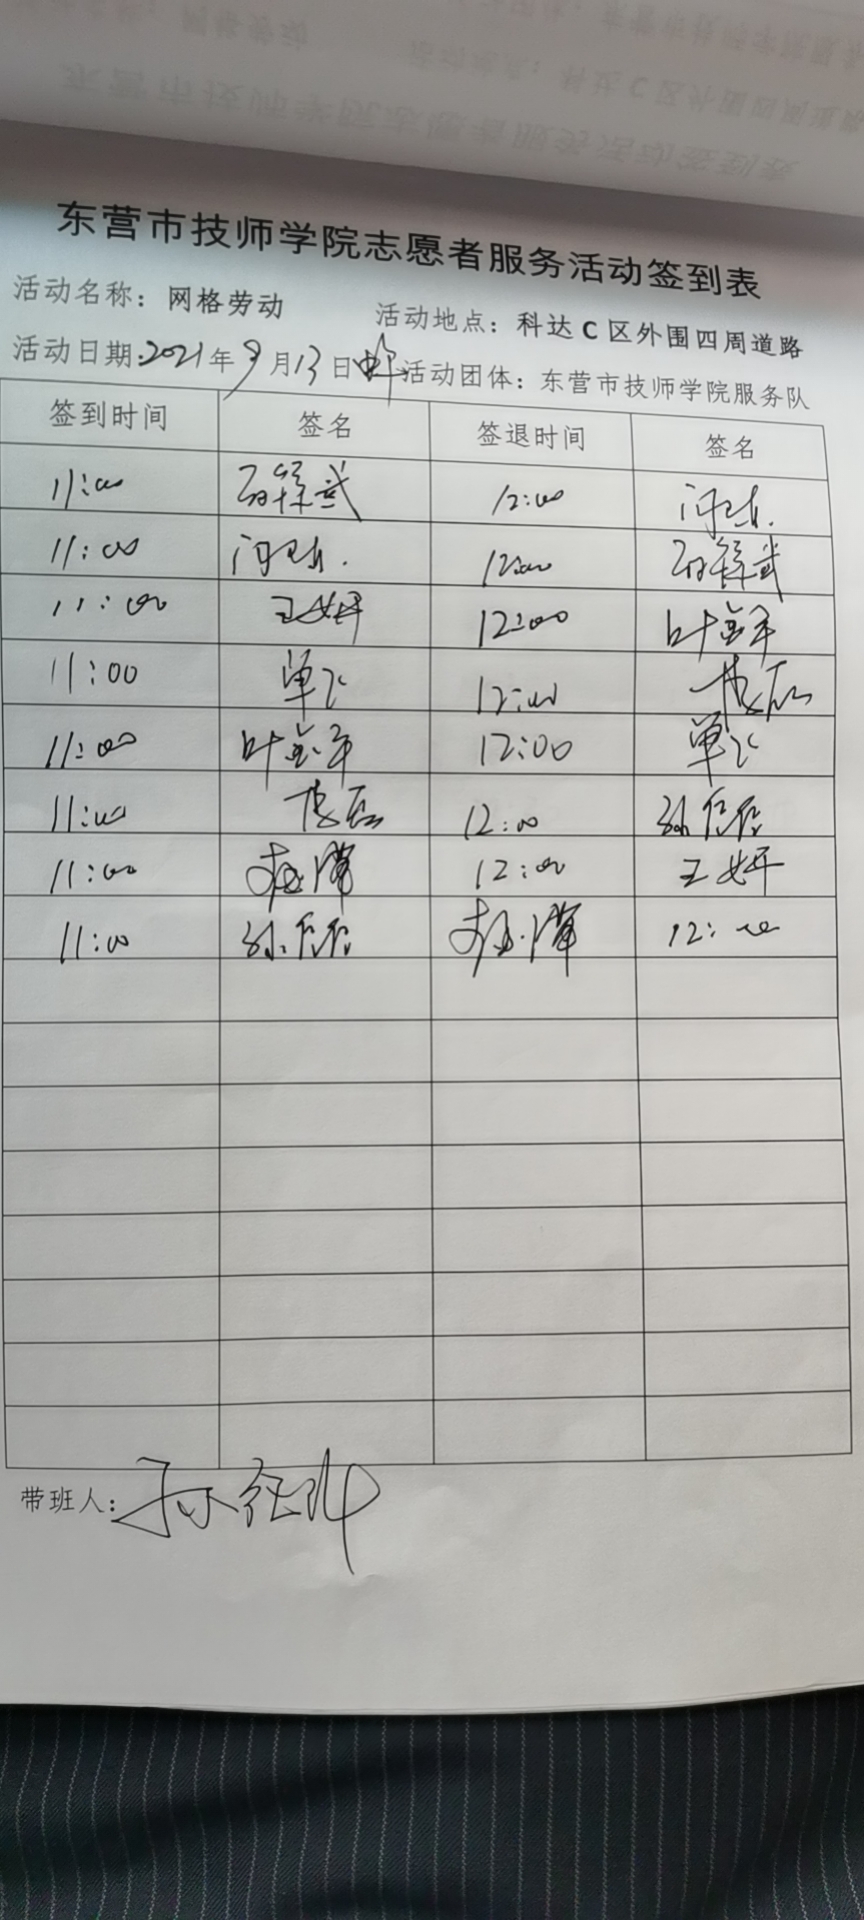 东营市技师学院志愿者服务活动签到表
活动名称：网格劳动 活动地点：科达C区外围四周道路
活动日期：2021年9月13日 活动团体：东营市技师学院服务队
签到时间 签名 签退时间 签名
11:00 12:00
11:00 12:00
11:00 王妍 12:00 叶金军
11:00 单飞 12:00
11:00 叶金军 12:00 单飞
11:00 12:00 孙倩倩
11:00 12:00 王妍
11:00 孙倩倩 12:00
带班人：孙